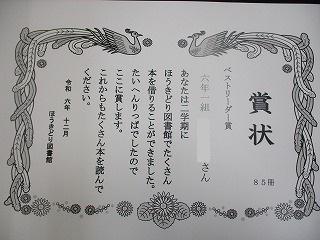 賞状
85冊
ベストリーダー賞
六年一組
さん
あなたは二学期に
ほうきどり図書館でたくさん
本を借りることができました。
たいへんりっぱでしたので
ここに賞します。
これからもたくさん本を読んで
ください。
令和 六年 十二月
ほうきどり図書館